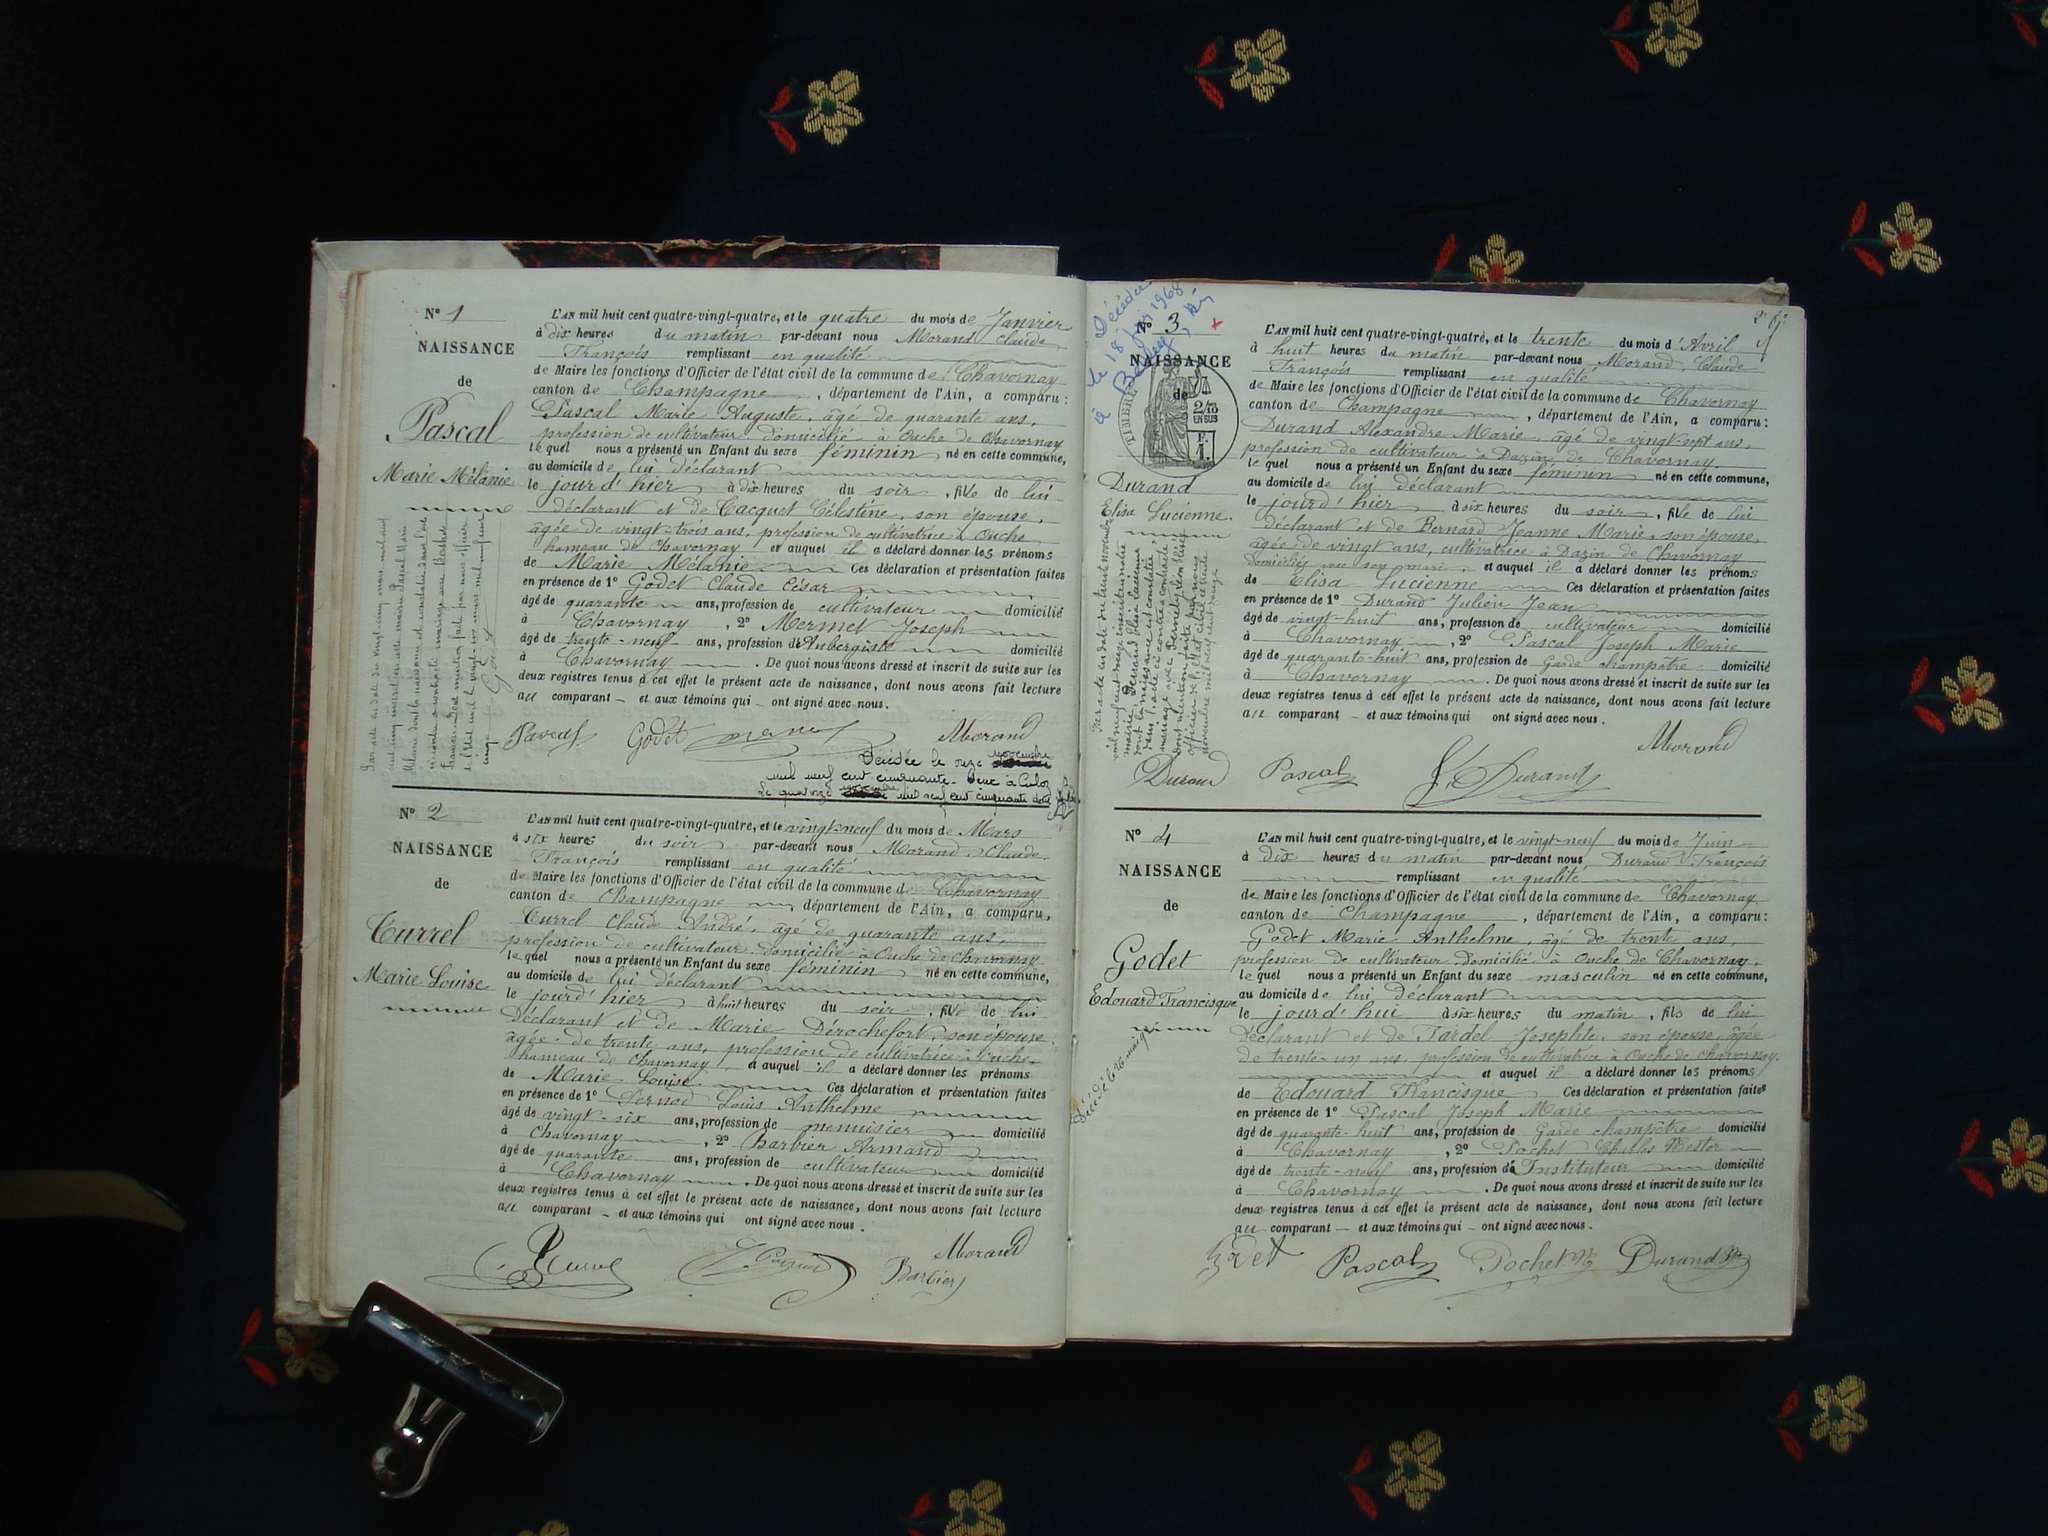 Nº 1
NAISSANCE
de
Pascal
Marie Mélanie
L'AN mil huit cent quatre-vingt-quatre, et le quatre du mois de Janvier
à dix heures du matin par-devant nous Morand Claude
François remplissant en qualité
de Maire les fonctions d'Officier de l'état civil de la commune de Chavornay
canton de Champagne, département de l'Ain, a comparu :
Pascal Marie Auguste, âgé de quarante ans,
profession de cultivateur domicilié à Ouche de Chavornay
lequel nous a présenté un Enfant du sexe féminin né en cette commune,
au domicile de lui déclarant
le jourd'hier à dix heures du soir, fille de lui
déclarant et de Cacquet Célestine, son épouse,
âgée de vingt-trois ans, profession de cultivatrice à Ouche
hameau de Chavornay et auquel il a déclaré donner les prénoms
de Marie Mélanie. Ces déclaration et présentation faites
en présence de 1º Godet Claude César
âgé de quarante ans, profession de cultivateur domicilié
à Chavornay, 2º Mermet Joseph
âgé de trente-neuf ans, profession d'Aubergiste domicilié
à Chavornay. De quoi nous avons dressé et inscrit de suite sur les
deux registres tenus à cet effet le présent acte de naissance, dont nous avons fait lecture
au comparant et aux témoins qui ont signé avec nous.
Pascal Godet Morand
Décédée le onze novembre
mil neuf cent cinquante-deux à Culoz
Le quatorze novembre mil neuf cent cinquante deux
Nº 2
NAISSANCE
de
Turrel
Marie Louise
L'AN mil huit cent quatre-vingt-quatre, et le vingt-neuf du mois de Mars
à six heures du soir par-devant nous Morand Claude
François remplissant en qualité
de Maire les fonctions d'Officier de l'état civil de la commune de Chavornay
canton de Champagne, département de l'Ain, a comparu,
Turrel Claude André, âgé de quarante ans,
profession de cultivateur domicilié à Ouche de Chavornay
lequel nous a présenté un Enfant du sexe féminin né en cette commune,
au domicile de lui déclarant
le jourd'hier à huit heures du soir, fille de lui
Déclarant et de Marie Dérochefort, son épouse
âgée de trente ans, profession de cultivatrice à Ouche
hameau de Chavornay, et auquel il a déclaré donner les prénoms
de Marie Louise. Ces déclaration et présentation faites
en présence de 1º Louis Anthelme
âgé de vingt-six ans, profession de menuisier domicilié
à Chavornay, 2º Barbier Armand
âgé de quarante ans, profession de cultivateur domicilié
à Chavornay. De quoi nous avons dressé et inscrit de suite sur les
deux registres tenus à cet effet le présent acte de naissance, dont nous avons fait lecture
au comparant et aux témoins qui ont signé avec nous.
Morand
Barbier
Décédée
le 18 1968
à Belley, Ain
Nº 3
NAISSANCE
de
TIMBRE
2/10
EN SUS
F.
1.
Durand
Elisa Lucienne
L'AN mil huit cent quatre-vingt-quatre, et le trente du mois d'Avril
à huit heures du matin par-devant nous Morand, Claude
François remplissant en qualité
de Maire les fonctions d'Officier de l'état civil de la commune de Chavornay
canton de Champagne, département de l'Ain, a comparu :
Durand Alexandre Marie, âgé de vingt sept ans,
profession de cultivateur à Dazin de Chavornay.
lequel nous a présenté un Enfant du sexe féminin né en cette commune,
au domicile de lui déclarant
le jourd'hier à six heures du soir, fille de lui
déclarant et de Bernard Jeanne Marie, son épouse,
âgée de vingt ans, cultivatrice à Dazin de Chavornay
et auquel il a déclaré donner les prénoms
de Elisa Lucienne Ces déclaration et présentation faites
en présence de 1º Durand Julien Jean
âgé de vingt-huit ans, profession de cultivateur domicilié
à Chavornay, 2º Pascal Joseph Marie
âgé de quarante-huit ans, profession de Garde champêtre domicilié
à Chavornay. De quoi nous avons dressé et inscrit de suite sur les
deux registres tenus à cet effet le présent acte de naissance, dont nous avons fait lecture
au comparant et aux témoins qui ont signé avec nous.
Morand
Durand Pascal Durand
Nº 4
NAISSANCE
de
Godet
Edouard Francisque
L'AN mil huit cent quatre-vingt-quatre, et le vingt-neuf du mois de Juin
à dix heures du matin par-devant nous Durand François
remplissant en qualité
de Maire les fonctions d'Officier de l'état civil de la commune de Chavornay
canton de Champagne, département de l'Ain, a comparu :
Godet Marie Anthelme, âgé de trente ans,
profession de cultivateur domicilié à Ouche de Chavornay.
lequel nous a présenté un Enfant du sexe masculin né en cette commune,
au domicile de lui déclarant
le jourd'hui à six heures du matin, fils de lui
déclarant et de Tardel Josephte, son épouse, âgée
de trente-un ans, profession de cultivatrice à Ouche de Chavornay.
et auquel il a déclaré donner les prénoms
de Edouard Francisque Ces déclaration et présentation faites
en présence de 1º Pascal Joseph Marie
âgé de quarante-huit ans, profession de Garde champêtre domicilié
à Chavornay, 2º Pochet
âgé de trente-neuf ans, profession d'Instituteur domicilié
à Chavornay. De quoi nous avons dressé et inscrit de suite sur les
deux registres tenus à cet effet le présent acte de naissance, dont nous avons fait lecture
au comparant et aux témoins qui ont signé avec nous.
Godet Pascal Pochet Durand